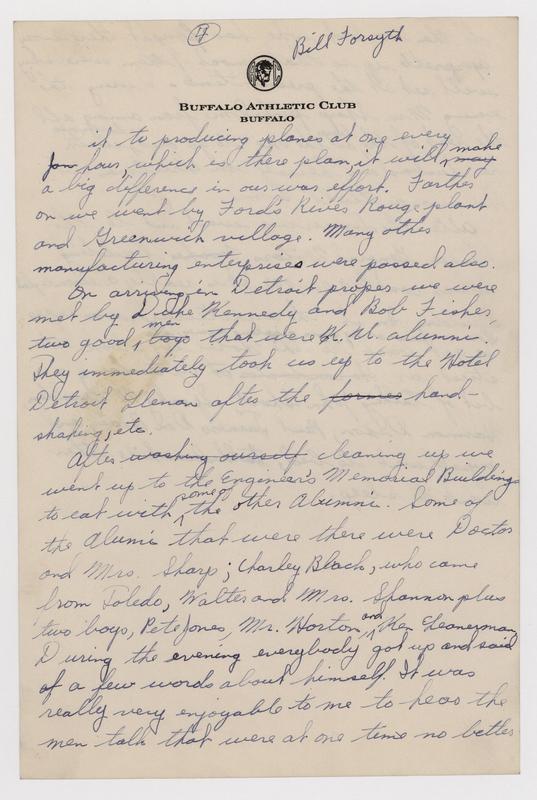 4
Bill Forsyth
BUFFALO ATHLETIC CLUB
BUFFALO
it to producing planes at one every
hour, which is there plan, it will make may
a big difference in our war effort. Farther
on we went by Ford's River Rouge plant
and Greenwich village. Many other
manufacturing enterprises were passed also.
On arriving in Detroit proper we were
met by Duke Kennedy and Bob Fisher,
two good men boys that were K. U. alumni.
They immediately took us up to the Hotel
Detroit Leland after the former hand-
shaking, etc.
After washing ourself cleaning up we
went up to the Engineer's Memorial Building
to eat with some of the other Alumni. Some of
the Alumi that were there were Doctor
and Mrs. Sharp; Charley Black, who came
from Toledo, Walter and Mrs. Shannon plus
two boys, Pete Jones, Mr. Horton, and Ken
During the evening everybody got up and said
of a few words about himself. It was
really very enjoyable to me to hear the
men talk that were at one time no better